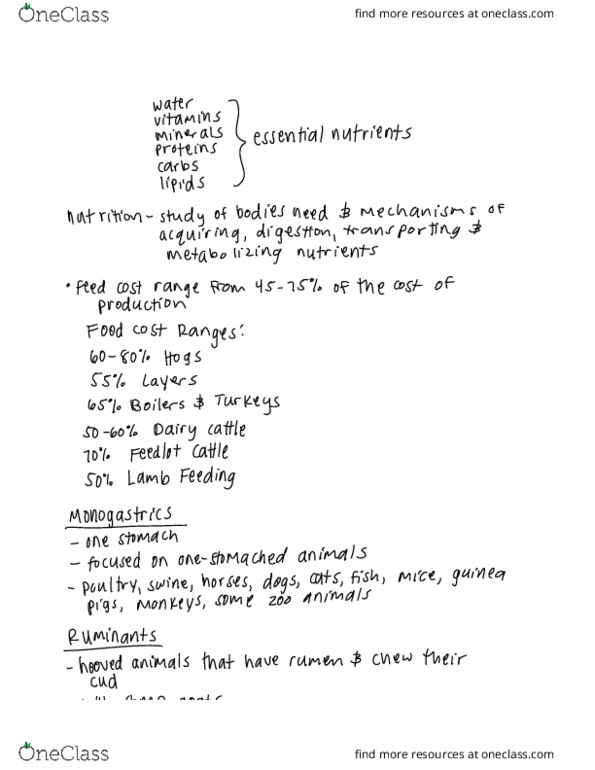 OneClass
find more resources at oneclass.com
water
vitamins
minerals
proteins
carbs
lipids
essential nutrients
nutrition - study of bodies need & mechanisms of
acquiring, digestion, transporting &
metabolizing nutrients
• feed cost range from 45-75% of the cost of
production
Food cost Ranges:
60-80% Hogs
55% Layers
65% Boilers & Turkeys
50-60% Dairy cattle
70% Feedlot Cattle
50% Lamb Feeding
Monogastrics
- one stomach
- focused on one-stomached animals
- poultry, swine, horses, dogs, cats, fish, mice, guinea
pigs, monkeys, some zoo animals
Ruminants
- hooved animals that have rumen & chew their
cud
OneClass
find more resources at oneclass.com